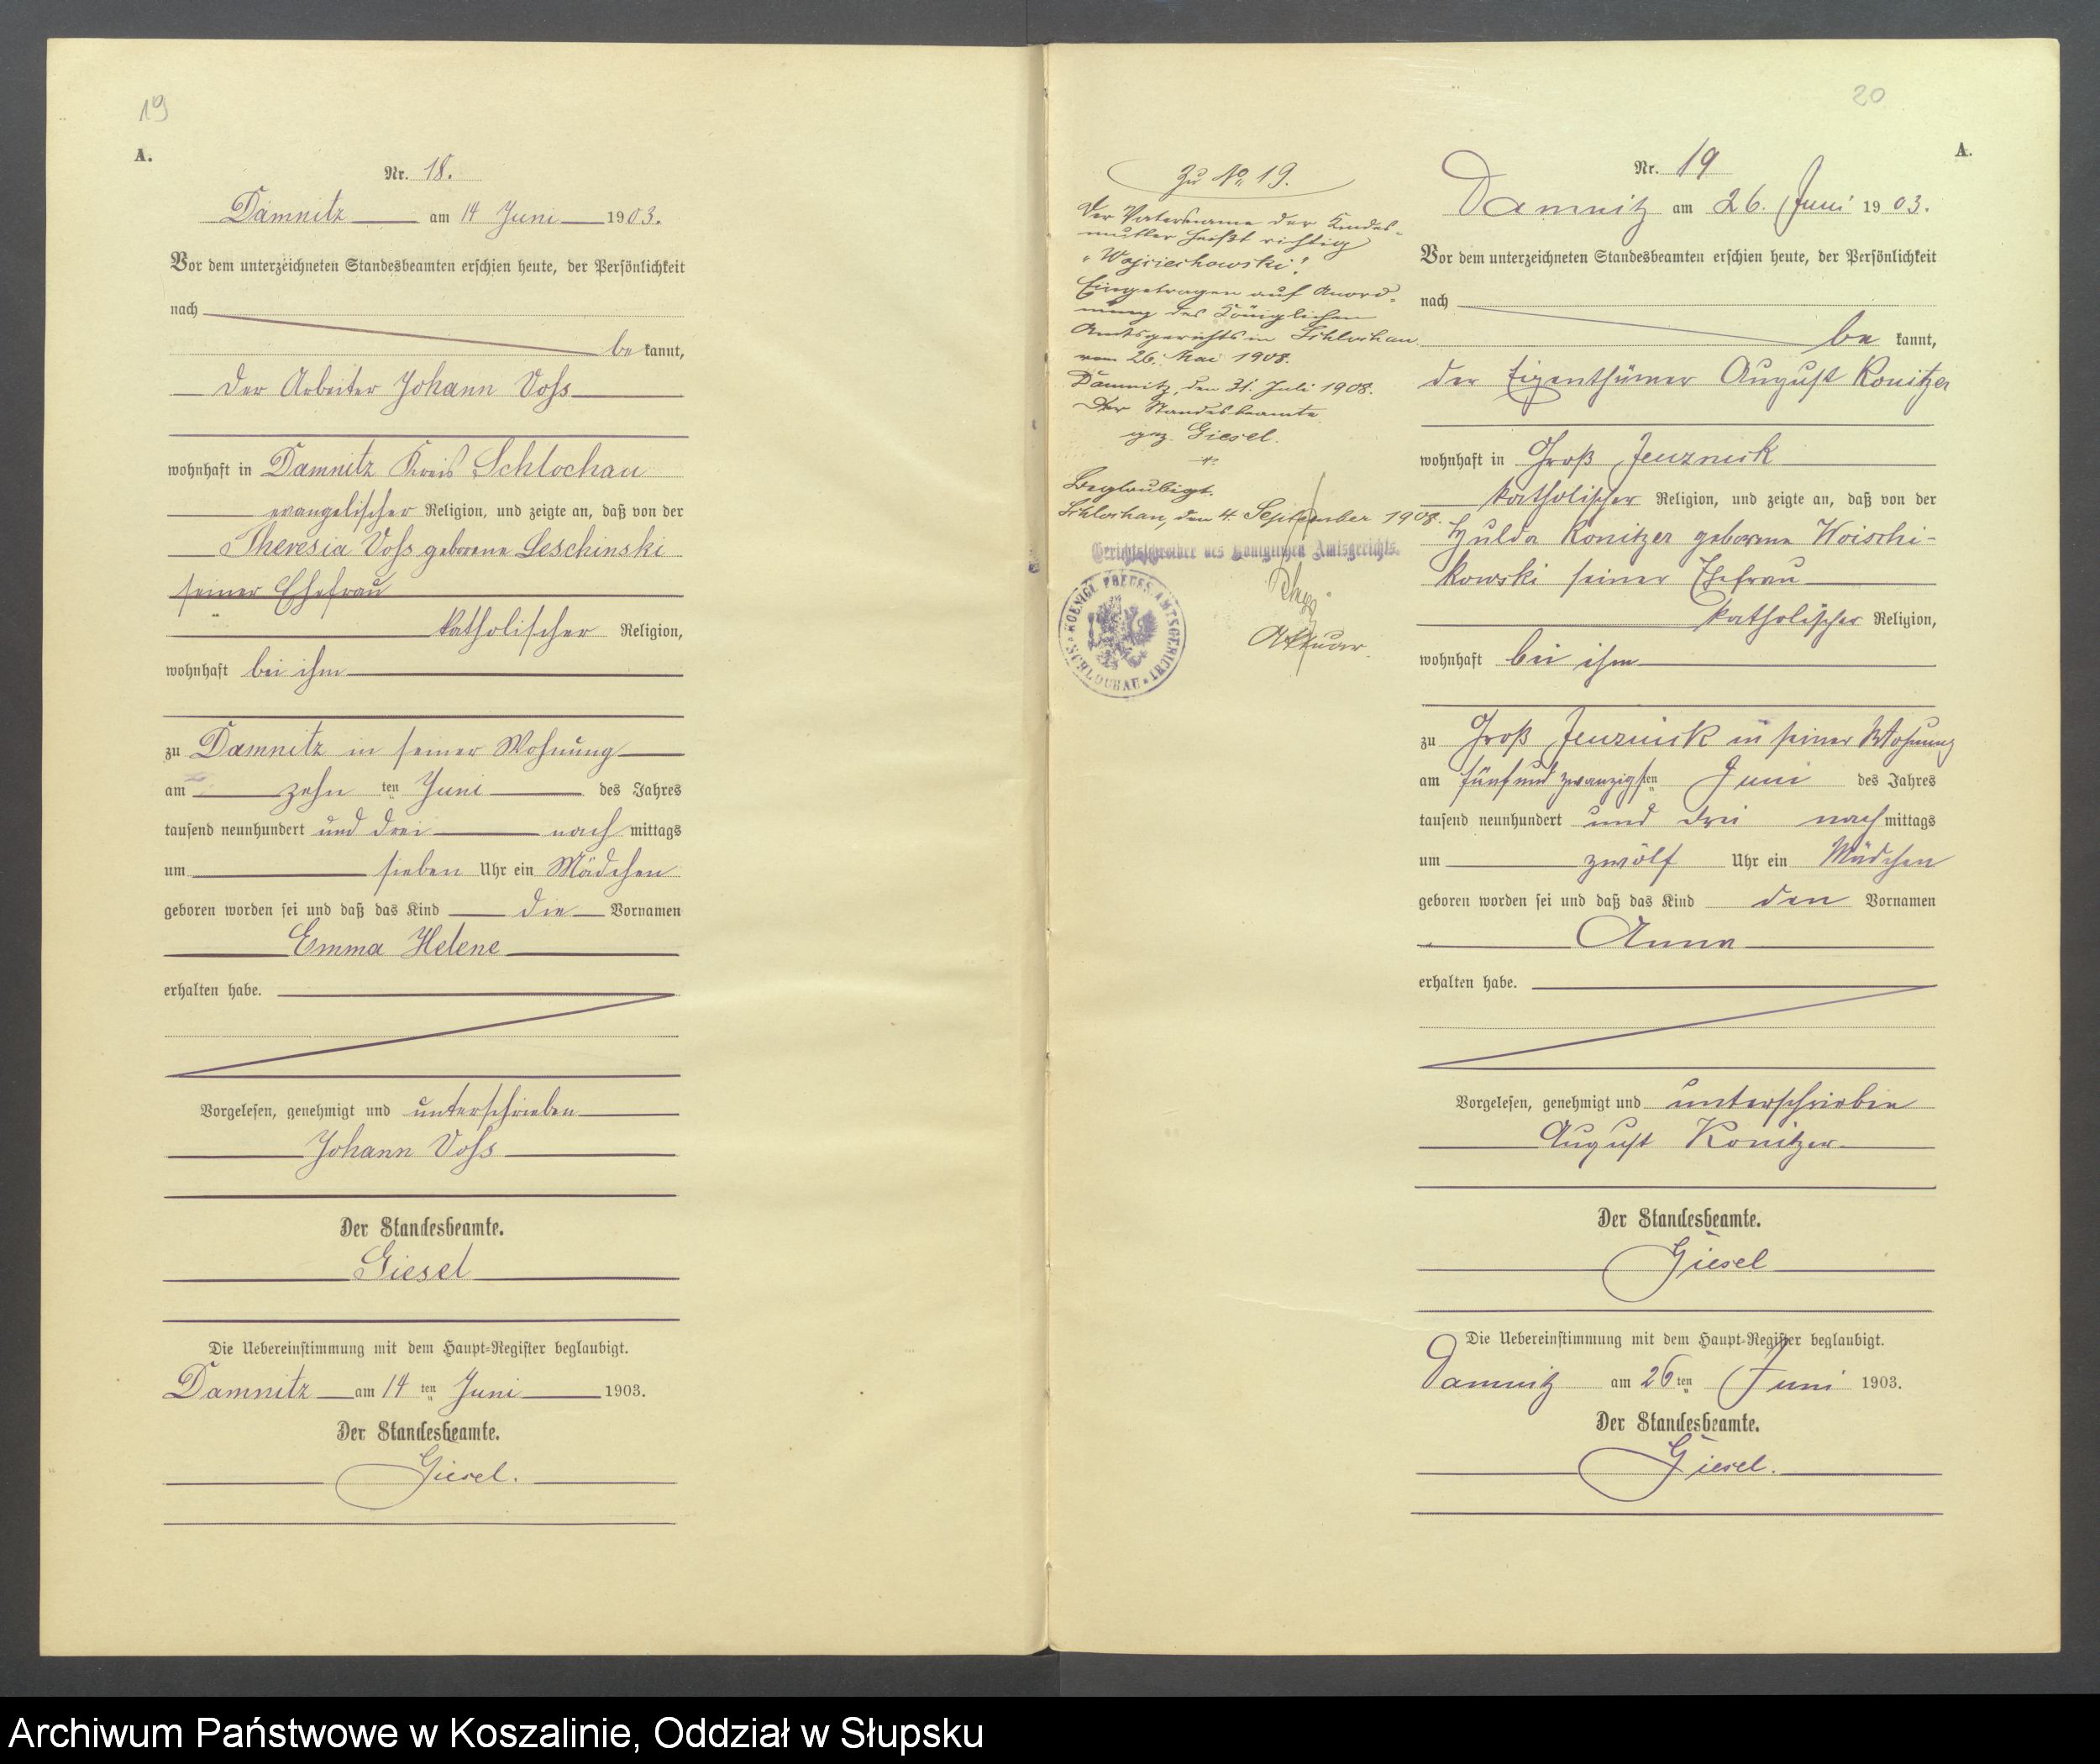 19
A.
Nr. 18.
Damnitz am 14 Juni 1903.
Vor dem unterzeichneten Standesbeamten erschien heute, der Persönlichkeit
nach
be kannt,
der Arbeiter Johann Voss
wohnhaft in Damnitz Kreis Schlochau
evangelischer Religion, und zeigte an, daß von der
Theresia Voss geborene Leschinski
seiner Ehefrau
katholischer Religion,
wohnhaft bei ihm
zu Damnitz in seiner Wohnung
am zehn ten Juni des Jahres
tausend neunhundert und drei nach mittags
um sieben Uhr ein Mädchen
geboren worden sei und daß das Kind die Vornamen
Emma Helene
erhalten habe.
Vorgelesen, genehmigt und unterschrieben
Johann Voss
Der Standesbeamte.
Giesel
Die Uebereinstimmung mit dem Haupt-Register beglaubigt.
Damnitz am 14 ten Juni 1903.
Der Standesbeamte.
Giesel.
Zu No 19.
Der Vatersname der Kindes-
mutter heißt richtig
"Wojciechowski"!
Eingetragen auf Anord-
nung des Königlichen
Amtsgerichts in Schlochau
vom 26. Mai 1908.
Damnitz, den 31. Juli 1908.
Der Standesbeamte.
gez. Giesel.
Beglaubigt.
Schlochau, den 4. September 1908.
Gerichtsschreiber des Königlichen Amtsgerichts.
KOENIGL. PREUSS. AMTSGERICHT
SCHLOCHAU
Aktuar.
20
A.
Nr. 19
Damnitz am 26. Juni 1903.
Vor dem unterzeichneten Standesbeamten erschien heute, der Persönlichkeit
nach
be kannt,
der Eigenthümer August Konitzer
wohnhaft in Groß Jenznick
katholischer Religion, und zeigte an, daß von der
Hulda Konitzer geborene Woischi-
kowski seiner Ehefrau
katholischer Religion,
wohnhaft bei ihm
zu Groß Jenznick in seiner Wohnung
am fünfundzwanzigsten Juni des Jahres
tausend neunhundert und drei nach mittags
um zwölf Uhr ein Mädchen
geboren worden sei und daß das Kind den Vornamen
Anna
erhalten habe.
Vorgelesen, genehmigt und unterschrieben
August Konitzer
Der Standesbeamte.
Giesel
Die Uebereinstimmung mit dem Haupt-Register beglaubigt.
Damnitz am 26 ten Juni 1903.
Der Standesbeamte.
Giesel.
Archiwum Państwowe w Koszalinie, Oddział w Słupsku